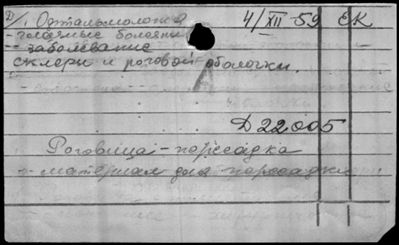 D/1 Офтальмология 4/XII-59 ЕК
- глазные болезни
- заболевание
склеры и роговой оболочки.
А
D 22005
Роговица - пересадка
- материал для пересадки